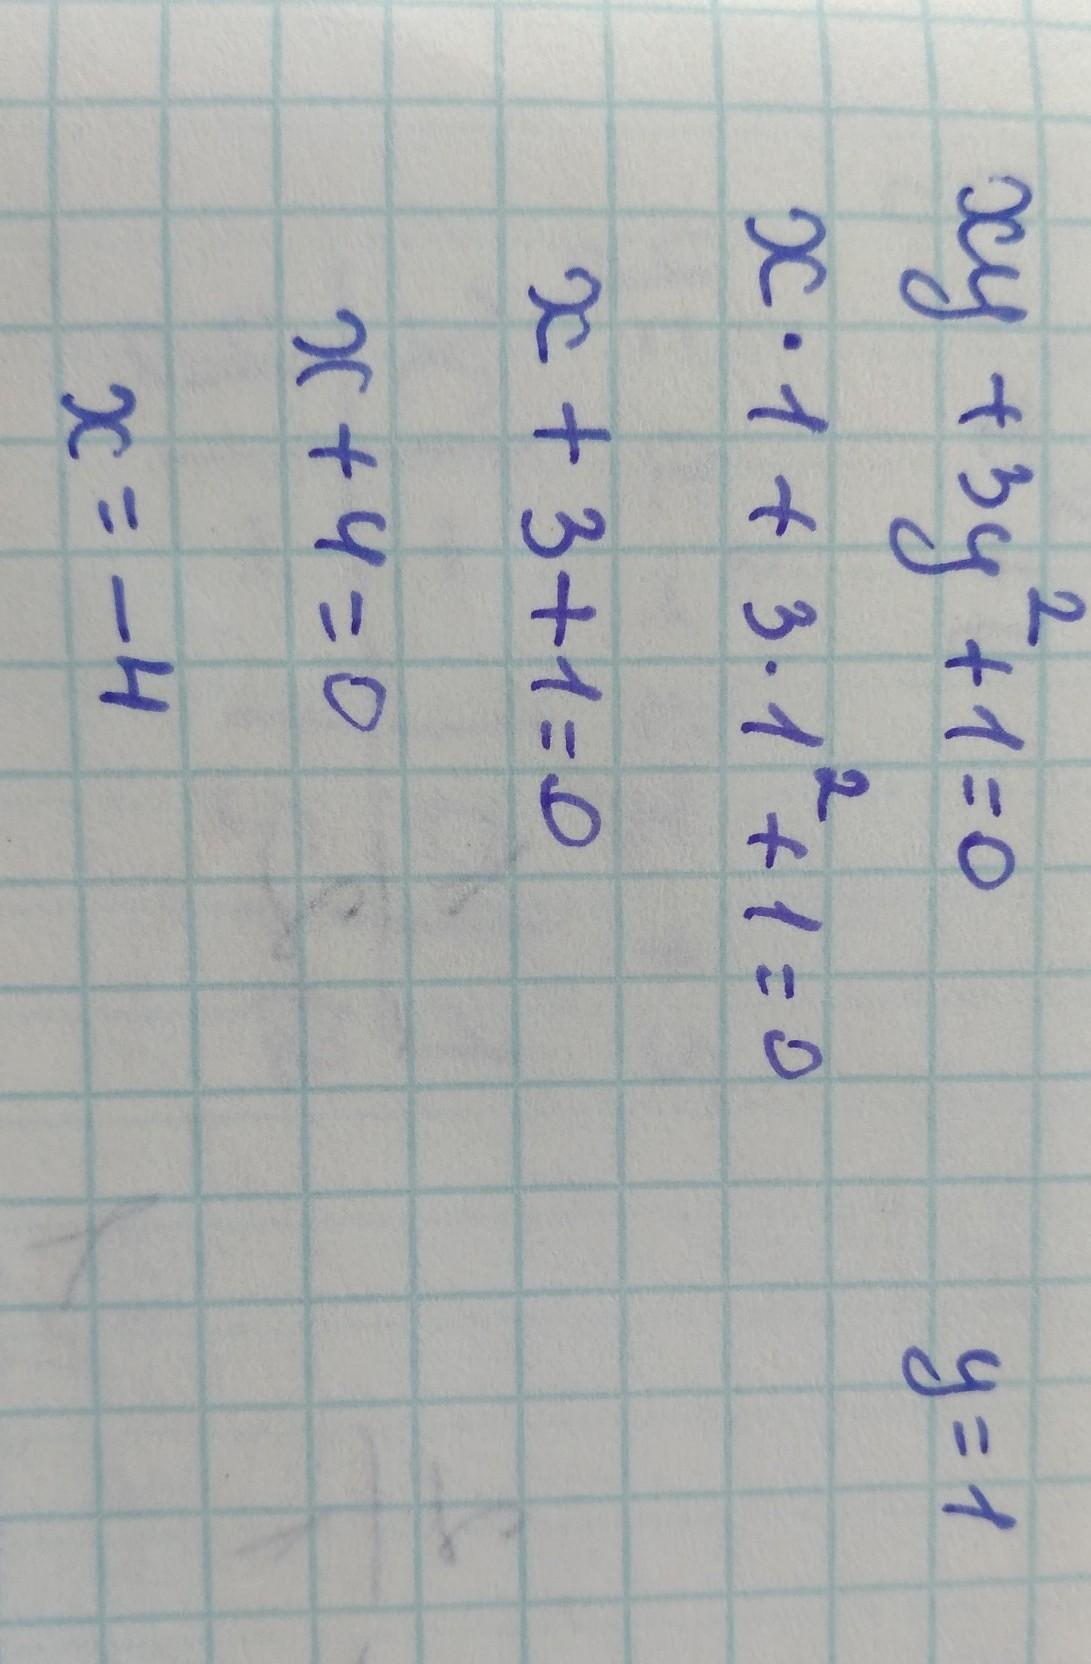 xy + 3y² + 1 = 0    y = 1
x · 1 + 3 · 1² + 1 = 0
x + 3 + 1 = 0
x + 4 = 0
x = -4